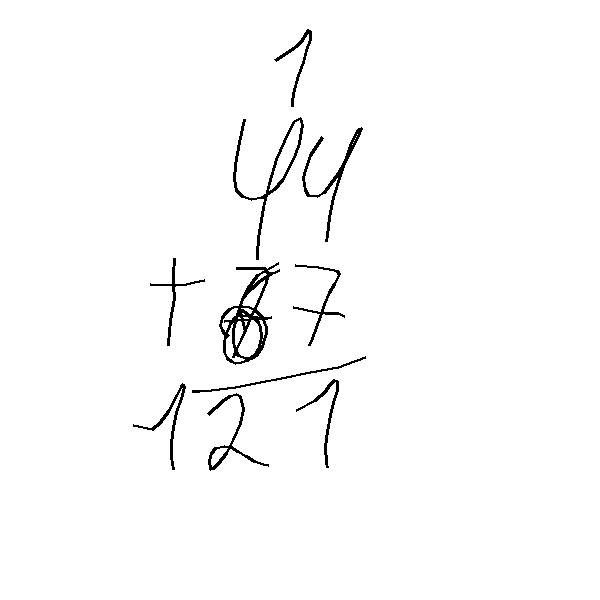 1
44
+ 67
121